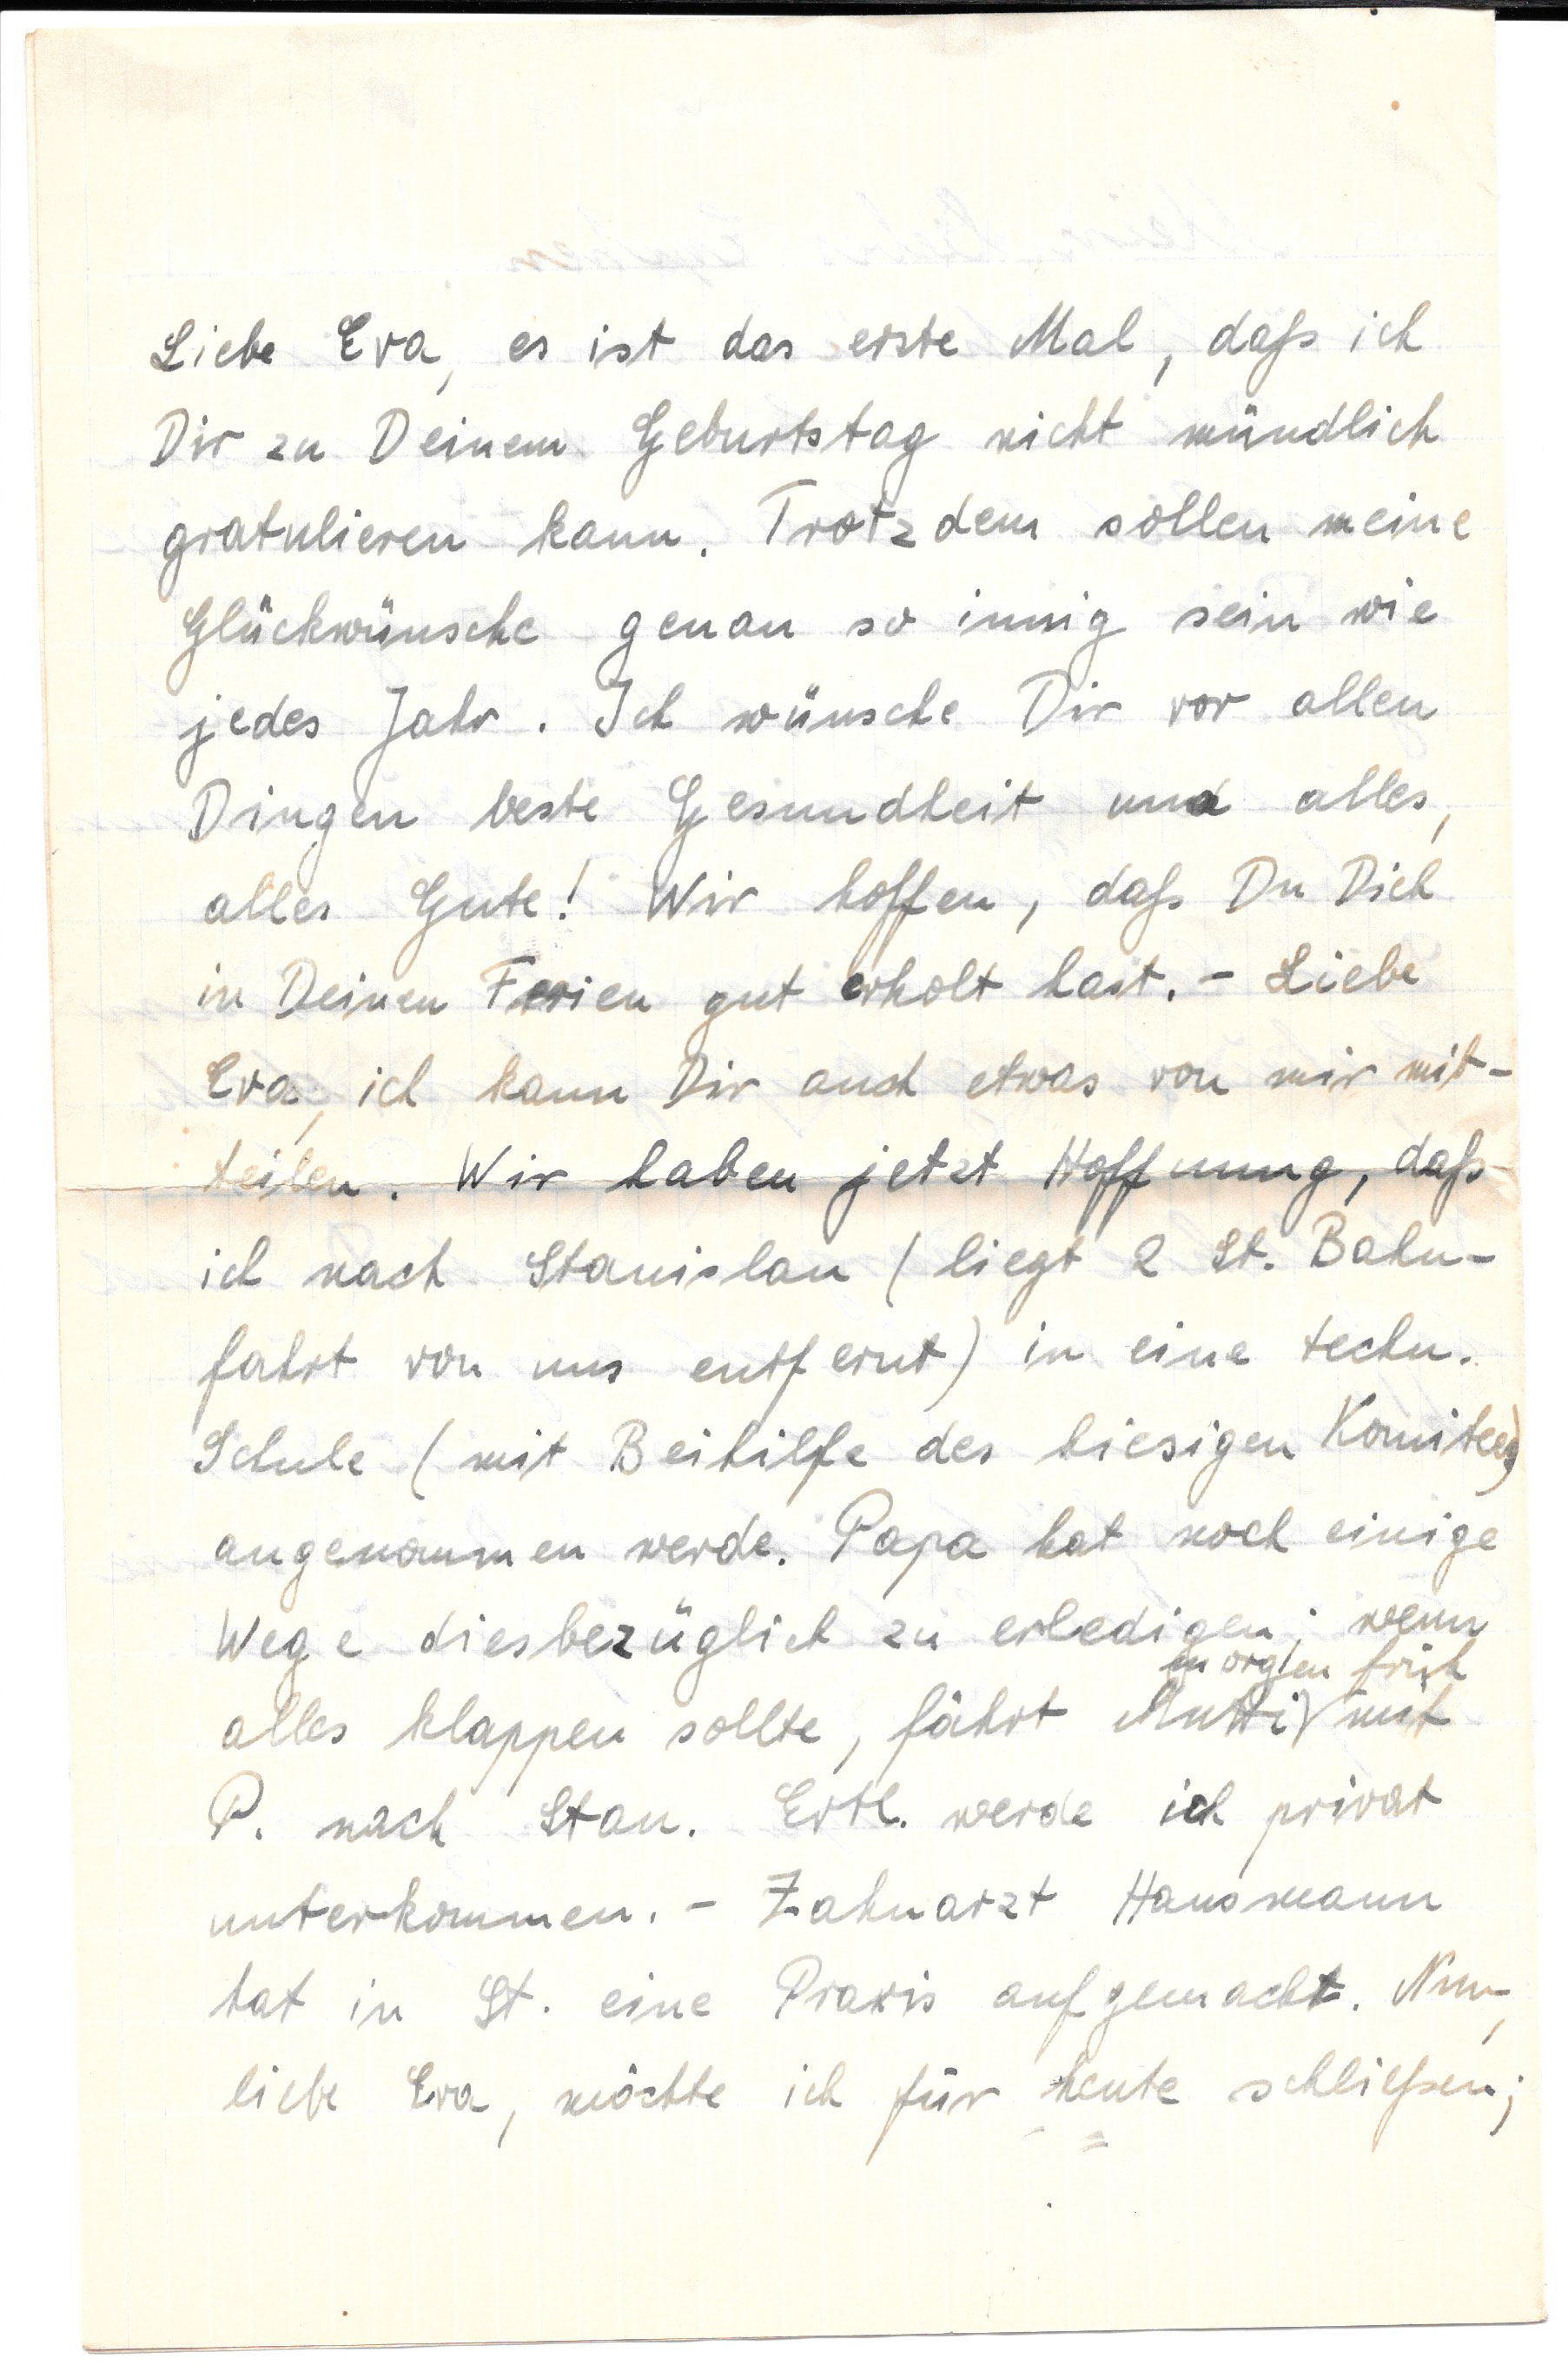 Liebe Eva, es ist das erste Mal, daß ich
Dir zu Deinem Geburtstag nicht mündlich
gratulieren kann. Trotzdem sollen meine
Glückwünsche genau so innig sein wie
jedes Jahr. Ich wünsche Dir vor allen
Dingen beste Gesundheit und alles,
alles Gute! Wir hoffen, daß Du Dich
in Deinen Ferien gut erholt hast. - Liebe
Eva, ich kann Dir auch etwas von mir mit-
teilen. Wir haben jetzt Hoffnung, daß
ich nach Stanislau (liegt 2 St. Bahn-
fahrt von uns entfernt) in eine techn.
Schule (mit Beihilfe des hiesigen Komitees)
angenommen werde. Papa hat noch einige
Wege diesbezüglich zu erledigen; wenn
morgen früh
alles klappen sollte, fährt Mutti mit
P. nach Stan. Evtl. werde ich privat
unterkommen. - Zahnarzt Hausmann
hat in St. eine Praxis aufgemacht. Nun,
liebe Eva, möchte ich für heute schließen;